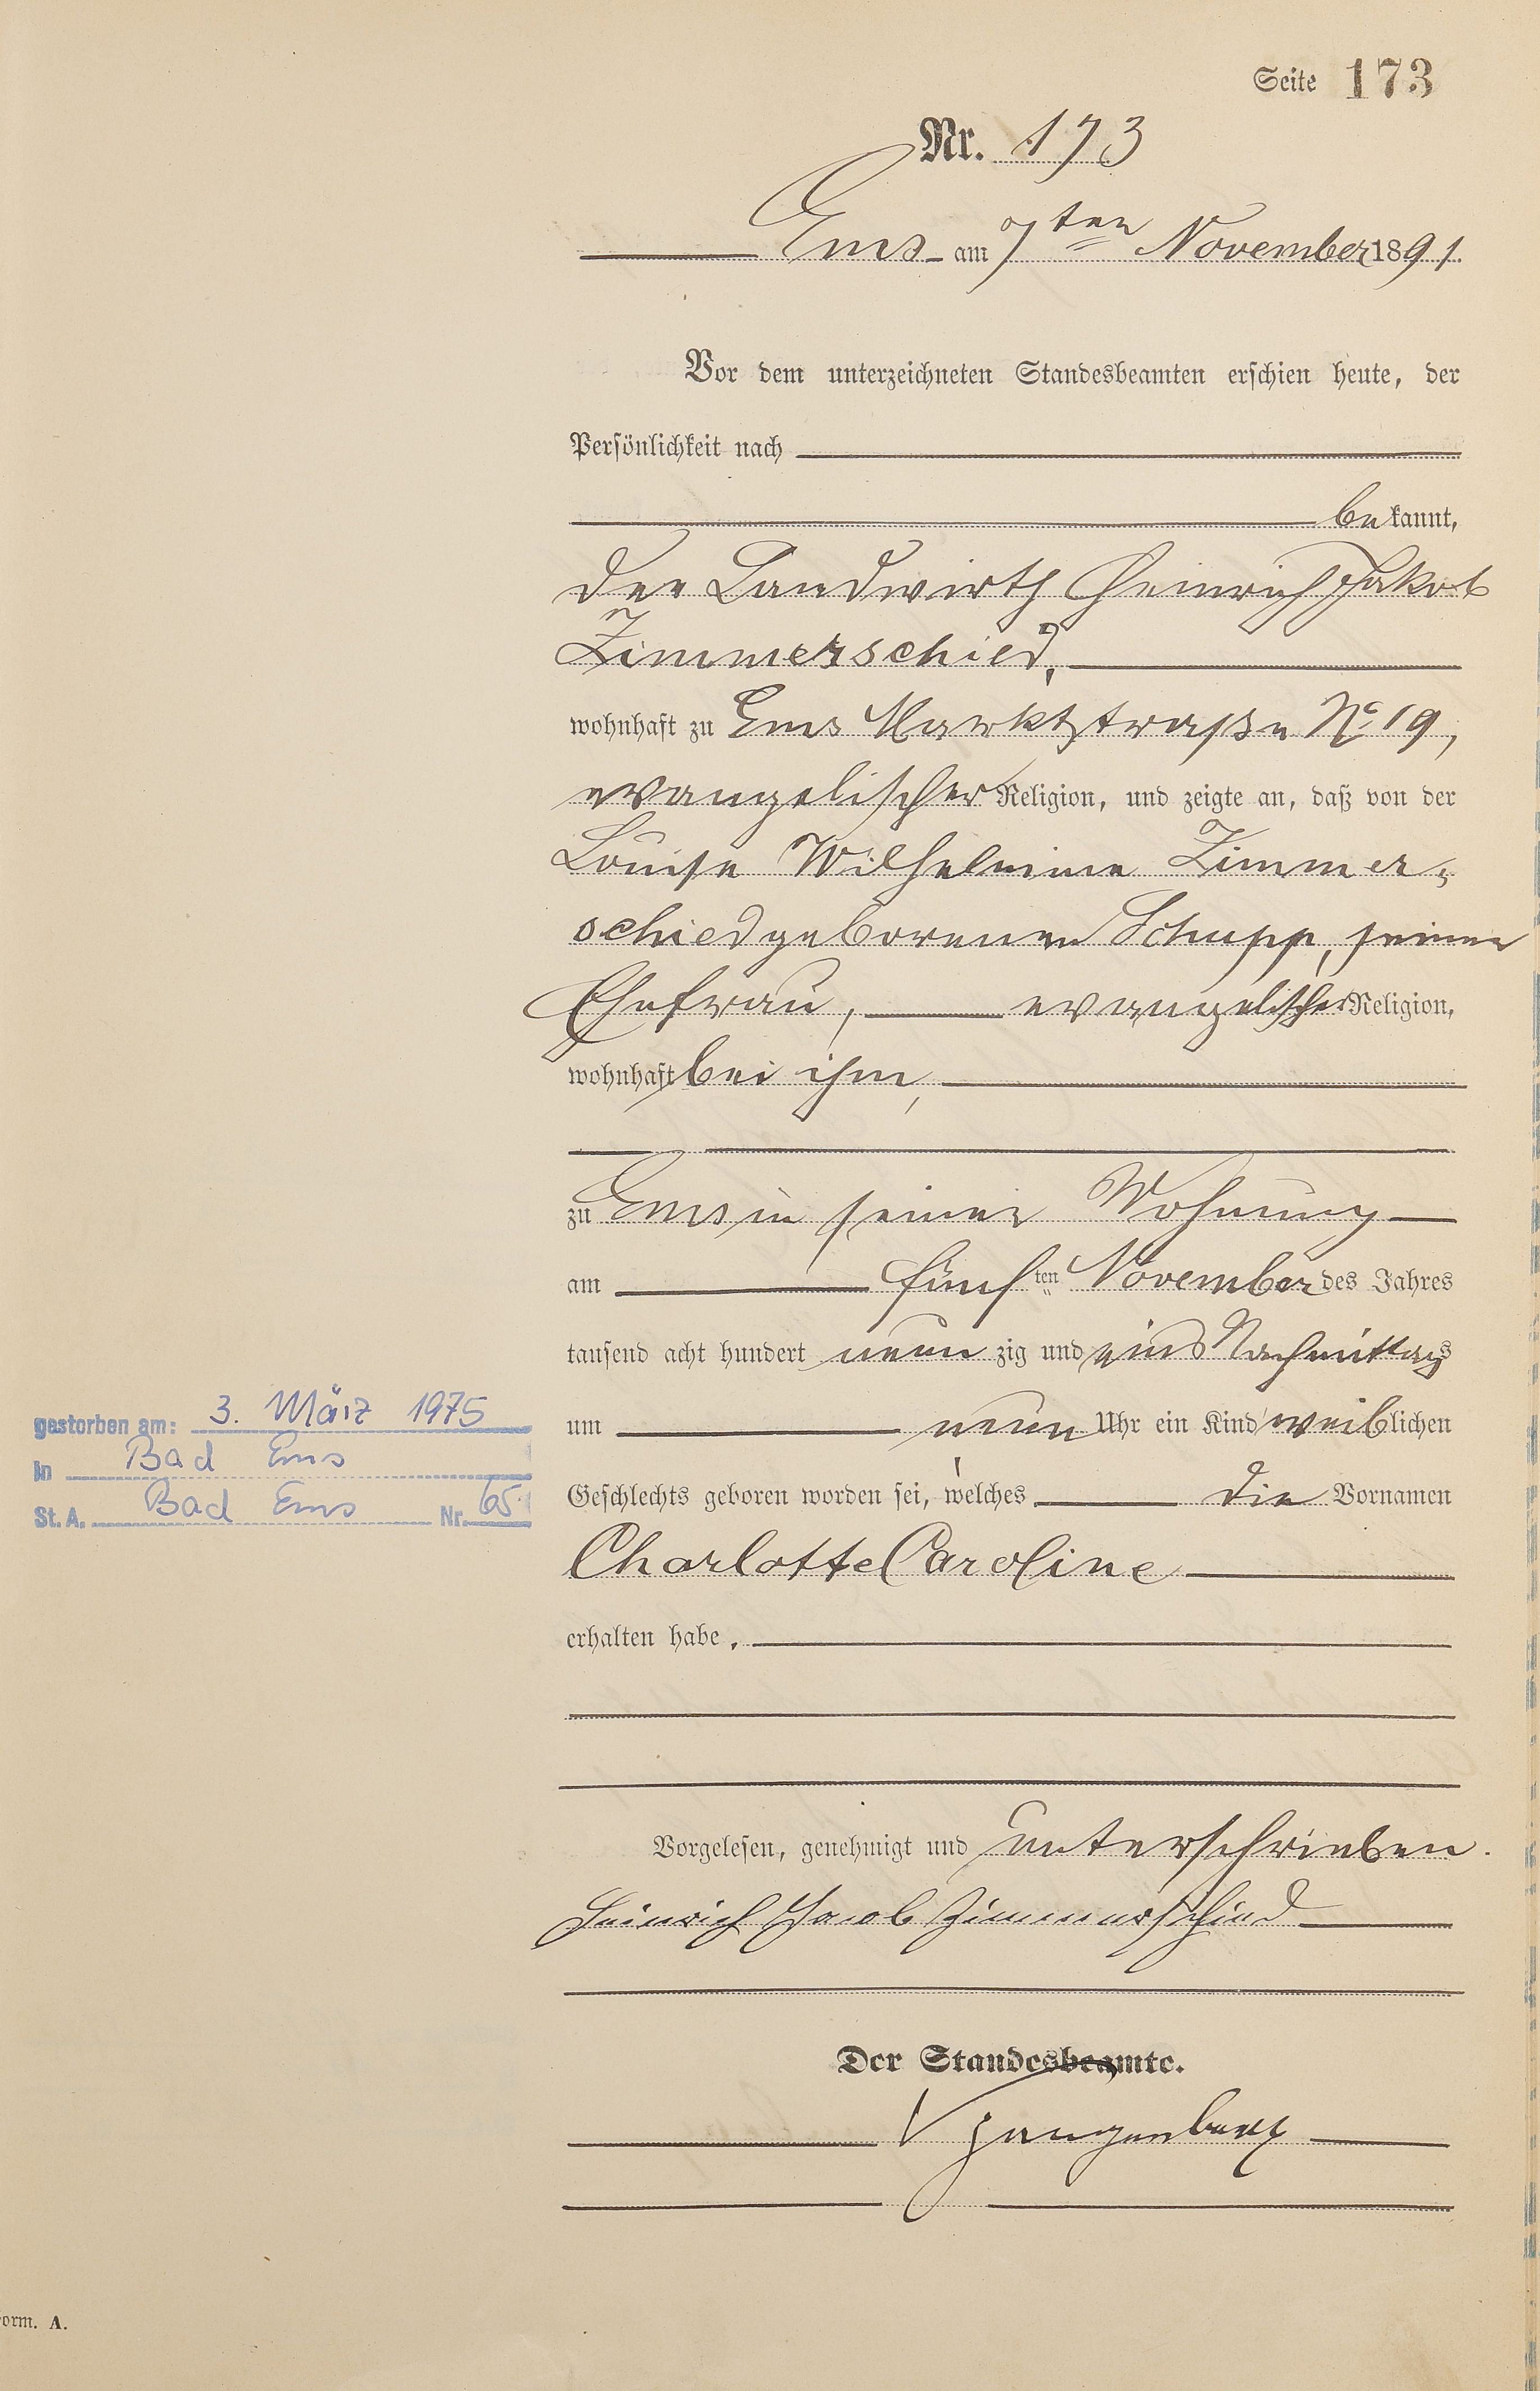 Seite 173
Nr. 173
Ems am 7ten November 1891.
Vor dem unterzeichneten Standesbeamten erschien heute, der
Persönlichkeit nach
bekannt,
der Landwirth Heinrich Jakob
Zimmerschied,
wohnhaft zu Ems Marktstraße No 19,
evangelischer Religion, und zeigte an, daß von der
Louise Wilhelmine Zimmer-
schied geborenen Schupp, seiner
Ehefrau, evangelischer Religion,
wohnhaft bei ihm,
zu Ems in seiner Wohnung
am fünften November des Jahres
tausend acht hundert neunzig und eins Nachmittags
um neun Uhr ein Kind weiblichen
Geschlechts geboren worden sei, welches die Vornamen
Charlotte Caroline
erhalten habe.
Vorgelesen, genehmigt und unterschrieben.
Heinrich Jacob Zimmerschied
Der Standesbeamte.
gestorben am: 3. März 1975
in Bad Ems
St. A. Bad Ems Nr. 65
Form. A.